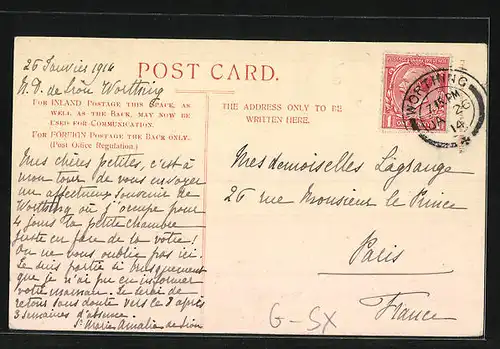 26 Janvier 1914
N. D. de Sion Worthing
POST CARD.
FOR INLAND POSTAGE THIS SPACE, AS
WELL AS THE BACK, MAY NOW BE
USED FOR COMMUNICATION.
FOR FOREIGN POSTAGE THE BACK ONLY.
(Post Office Regulation.)
THE ADDRESS ONLY TO BE
WRITTEN HERE.
WORTHING
7.15 PM
JA 26
14
Mes chères petites, c'est à
mon tour de vous envoyer
un affectueux souvenir de
Worthing où j'occupe pour
4 jours la petite chambre
juste en face de la vôtre!
On ne vous oublie pas ici.
Je suis partie si brusquement
que je n'ai pu en informer
votre maman. Je serai de
retour sans doute vers le 8 après
3 semaines d'absence.
Sr Marie Amalia de Sion
Mesdemoiselles Lagrange
26 rue Monsieur le Prince
Paris
France
G-SX